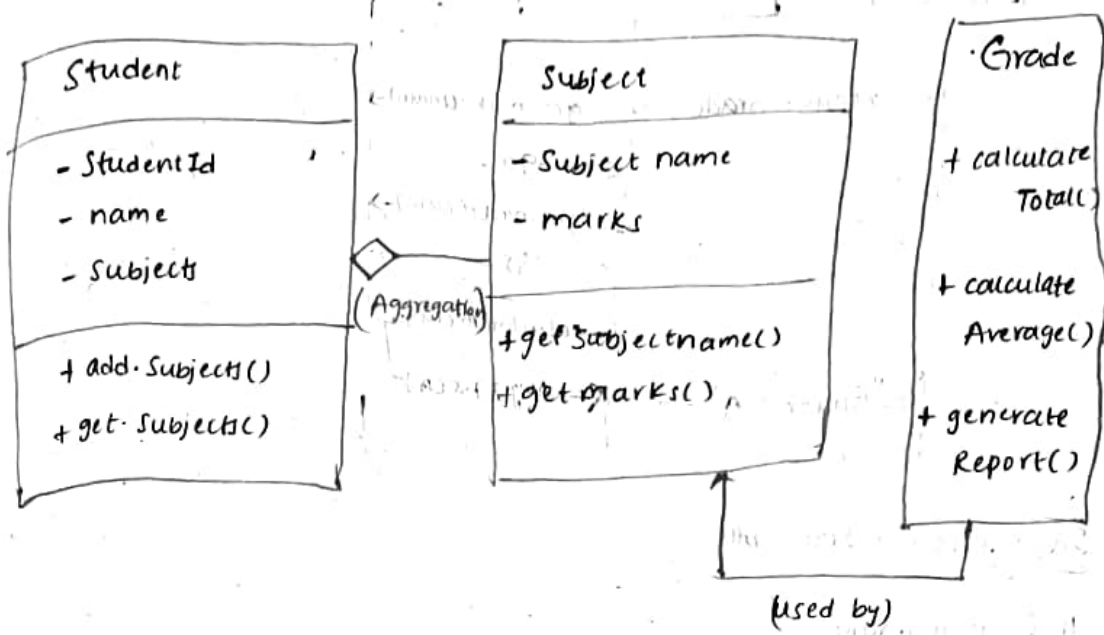 Student
- StudentId
- name
- Subjects
+ add.Subjects()
+ get.Subjects()
(Aggregation)
Subject
- Subject name
- marks
+ get Subjectname()
+ get marks()
Grade
+ calculate
Total()
+ calculate
Average()
+ generate
Report()
(used by)